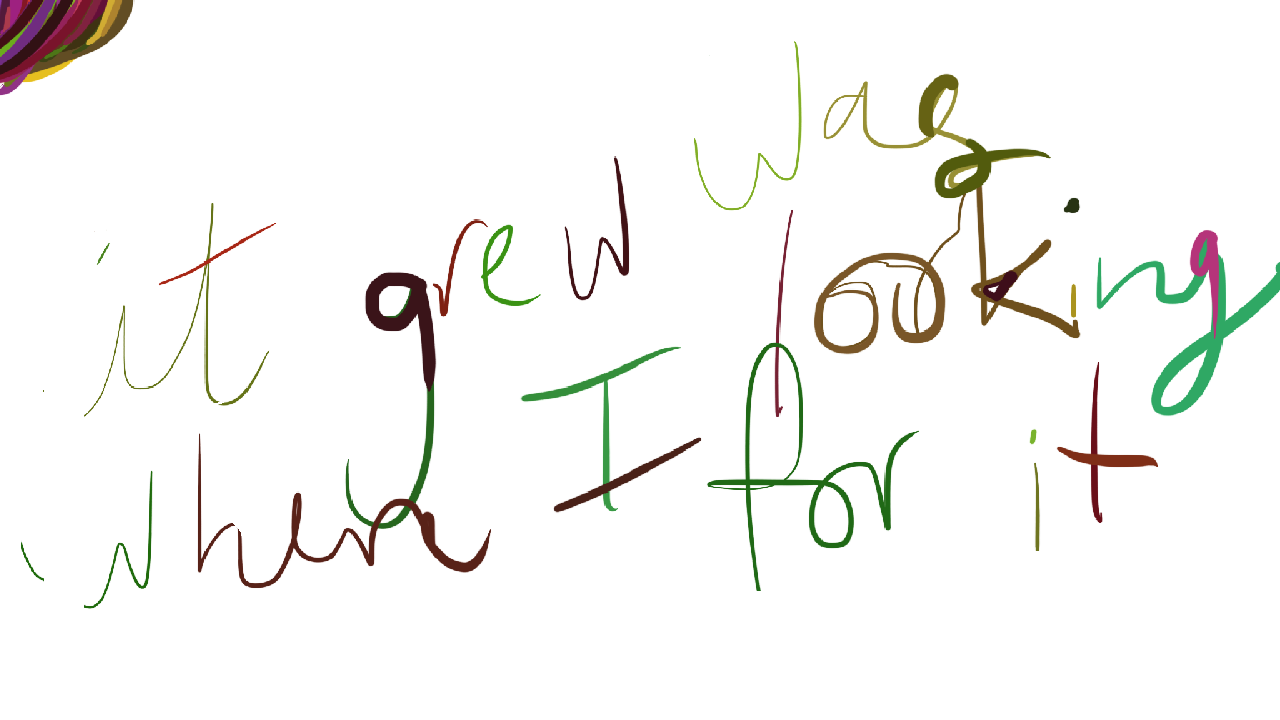 it grew
when I was
looking
for it